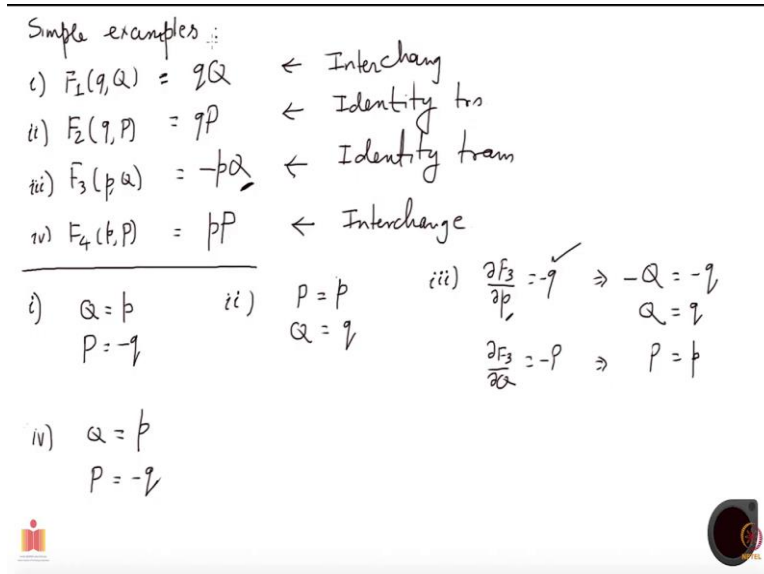 Simple examples :
i) F₁(q,Q) = qQ ← Interchang
ii) F₂(q,P) = qP ← Identity trs
iii) F₃(p,Q) = -pQ ← Identity tram
iv) F₄(p,P) = pP ← Interchange
i) Q = p
P = -q
ii) P = p
Q = q
iii) ∂F₃/∂p = -q ✓ ⇒ -Q = -q
Q = q
∂F₃/∂Q = -P ⇒ P = p
iv) Q = p
P = -q
NPTEL